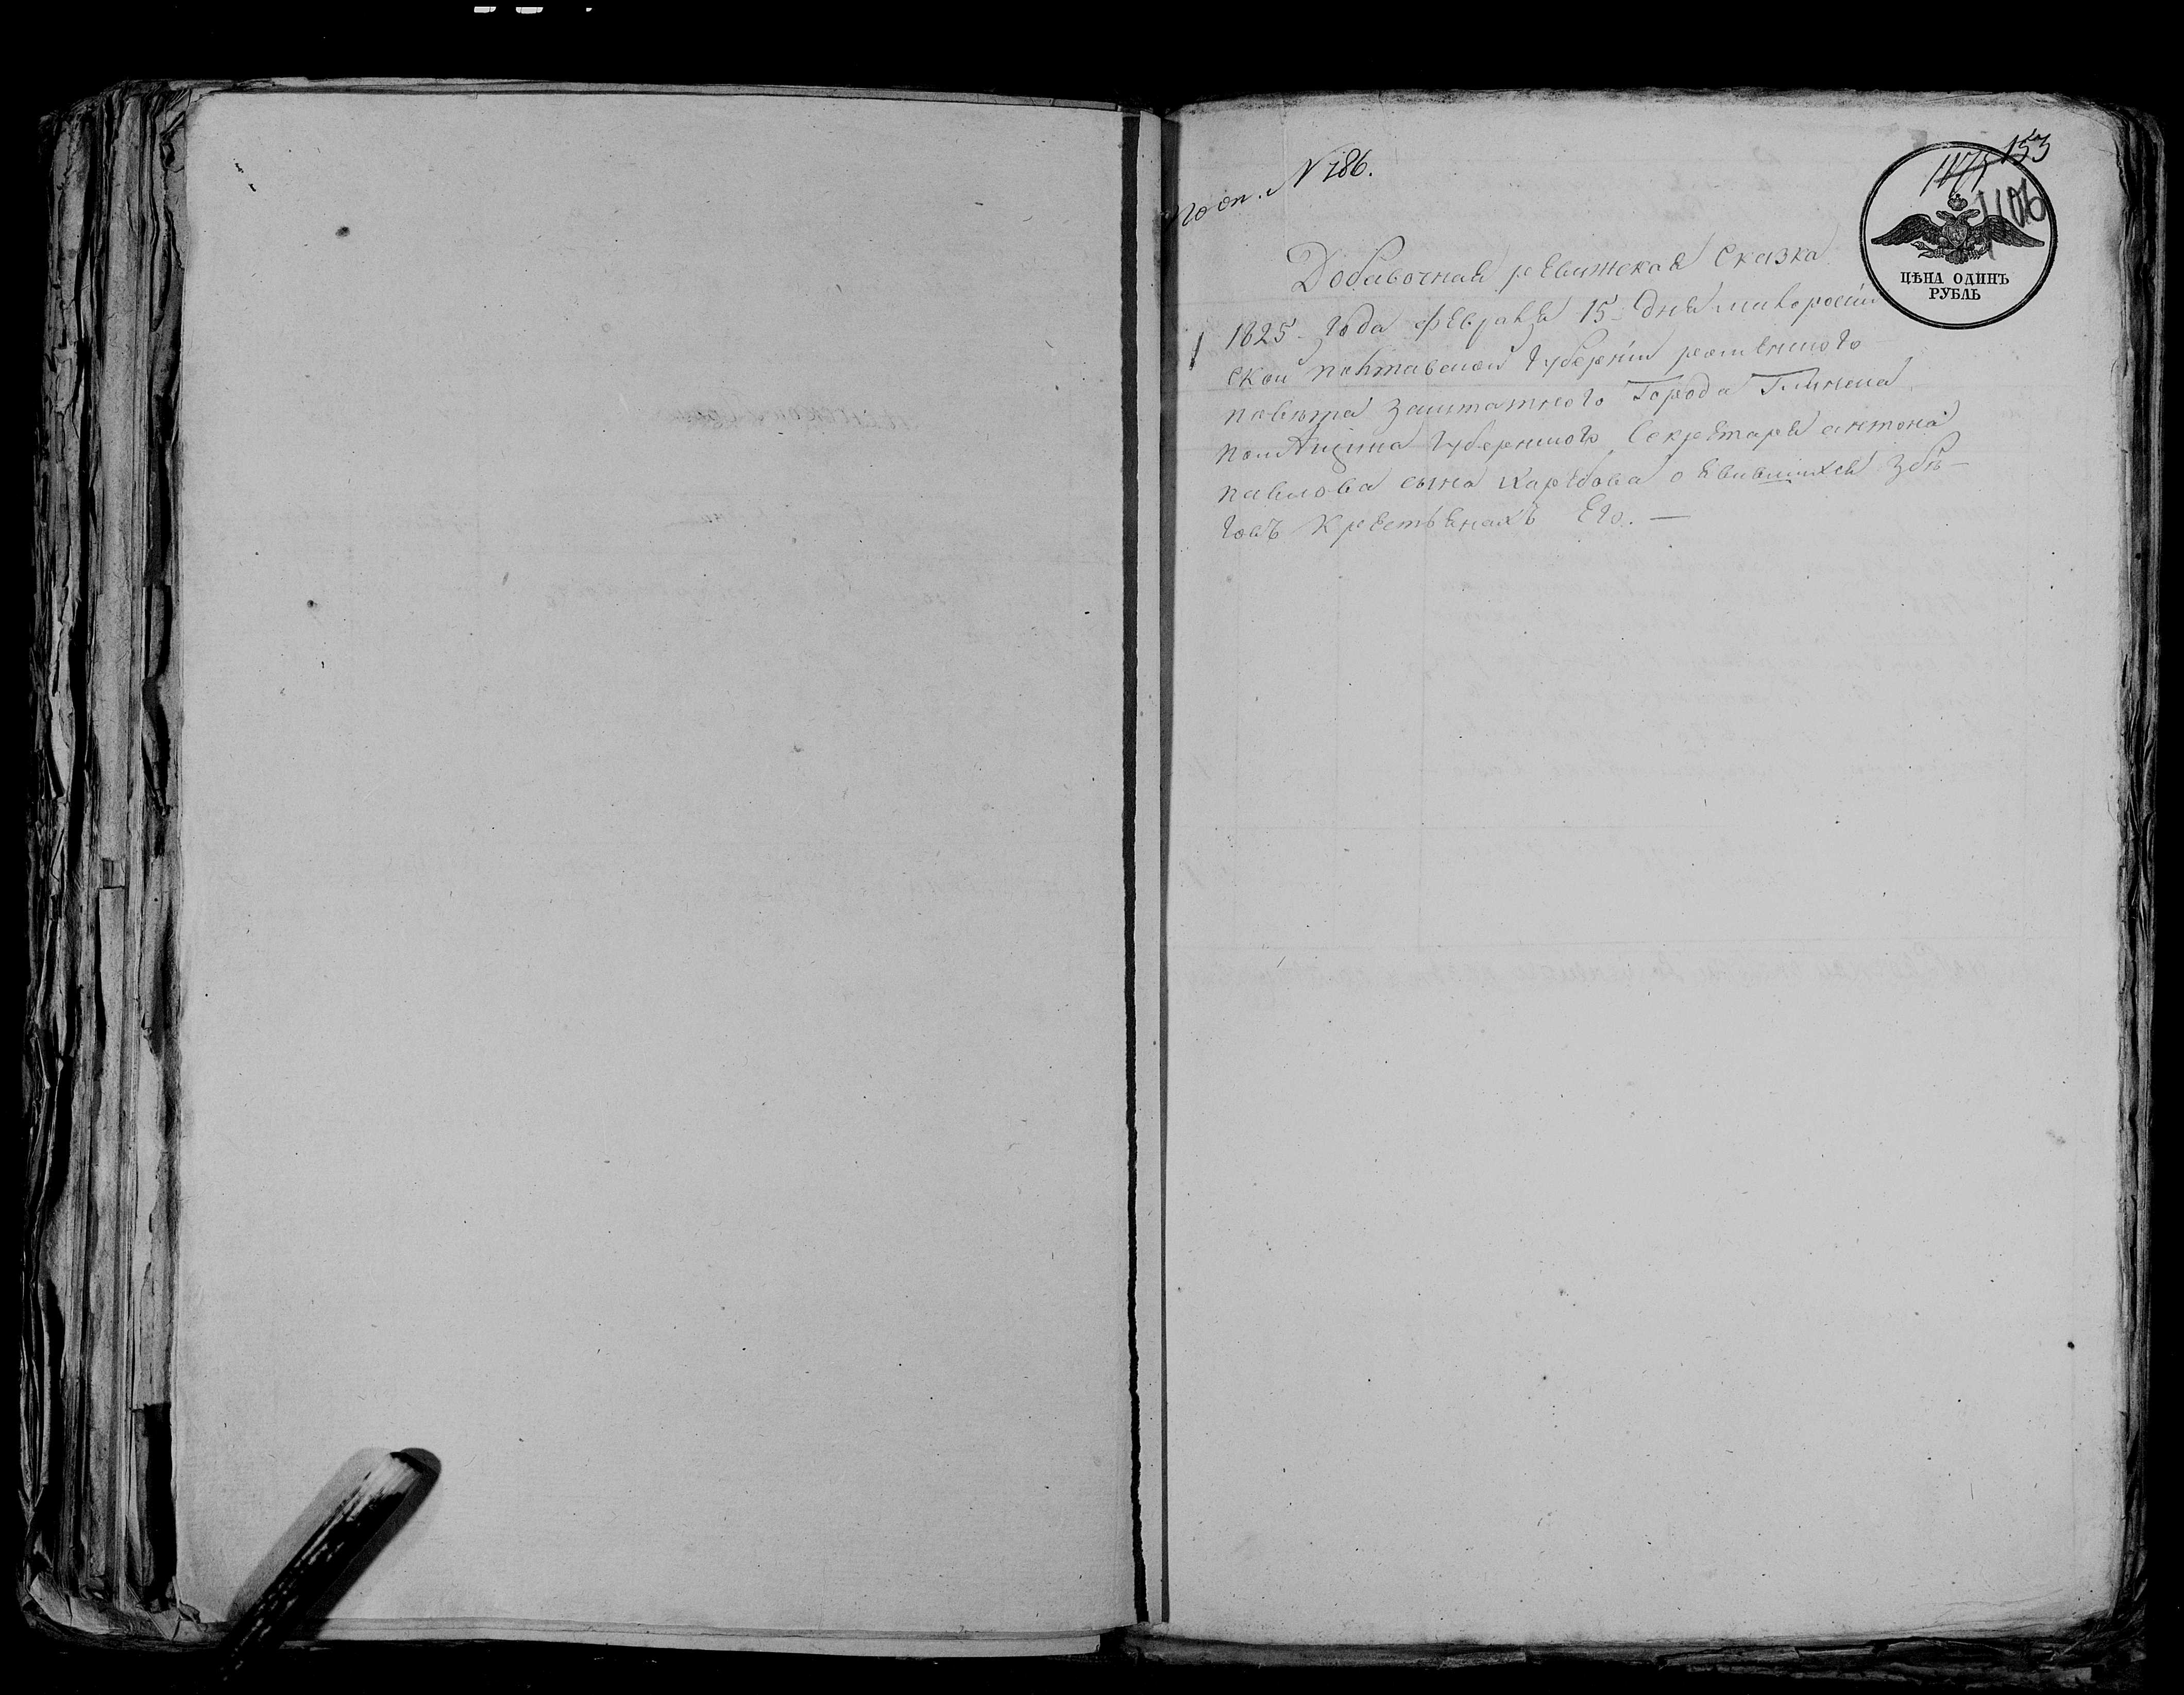 по оп. N 786.
153
1106
ЦѢНА ОДИНЪ
РУБЛЬ
Добавочная ревижская сказка
1825 года февраля 15 дня малоросій
ской полтавской губерніи роменского
повѣта заштатного Города Глинска
помѣщика губернского Секретаря антона
павлова сына о явившихся збѣ-
говъ крестьянахъ Его. —